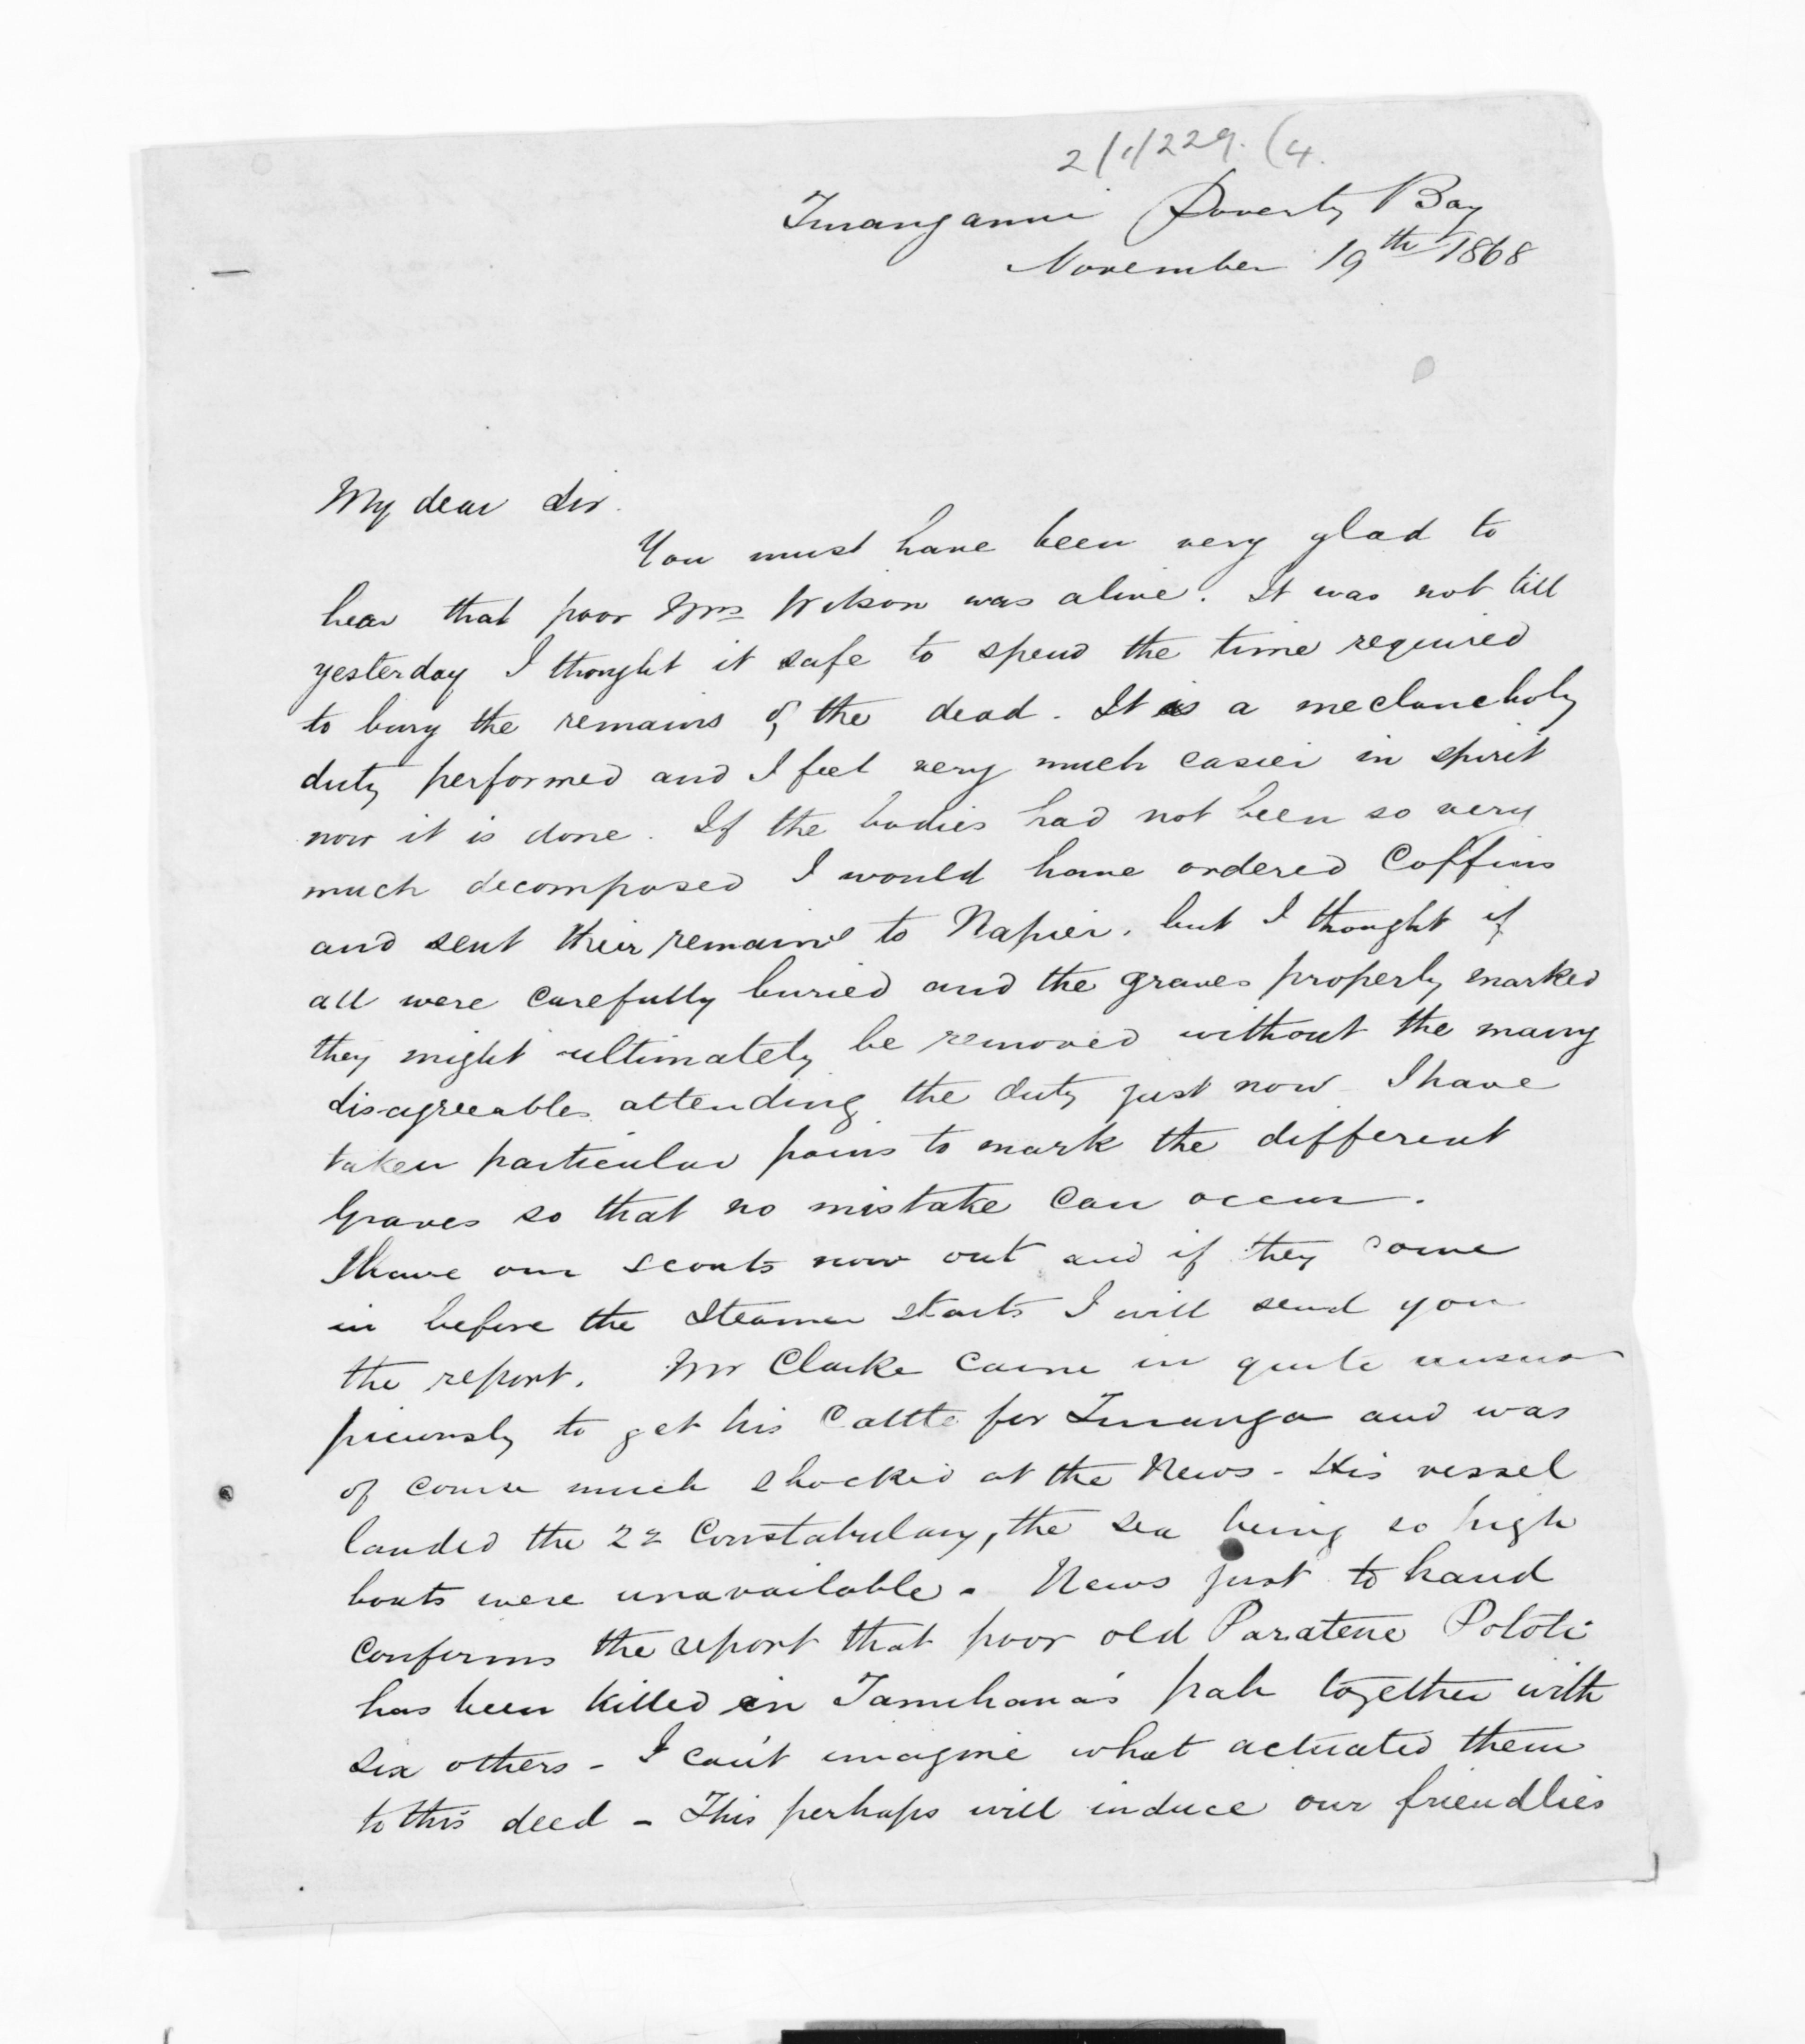 2/1/229. (4.
Turanganui Poverty Bay
November 19th 1868
My dear Sir.
You must have been very glad to
hear that poor Mrs Wilson was alive. It was not till
yesterday I thought it safe to spend the time required
to bury the remains of the dead. It is a meclancholy
duty performed and I feel very much easier in spirit
now it is done. If the bodies had not been so very
much decomposed I would have ordered Coffins
and sent their remains to Napier. but I thought if
all were carefully buried and the graves properly marked
they might ultimately be removed without the many
disagreeables attending the duty just now I have
taken particular pains to mark the different
Graves so that no mistake can occur.
I have our scouts now out and if they come
in before the Steamer starts I will send you
the report. Mr Clarke came in quite unsus
piciously to get his Cattle for Turanga and was
of course much shocked at the News - His vessel
landed the 22 Constabulary, the sea being so high
boats were unavailable. News just to hand
confirms the report that poor old Paratene Pototi
has been killed in Tamihana's pah together with
six others - I can't imagine what actuated them
to this deed - This perhaps will induce our friendlies